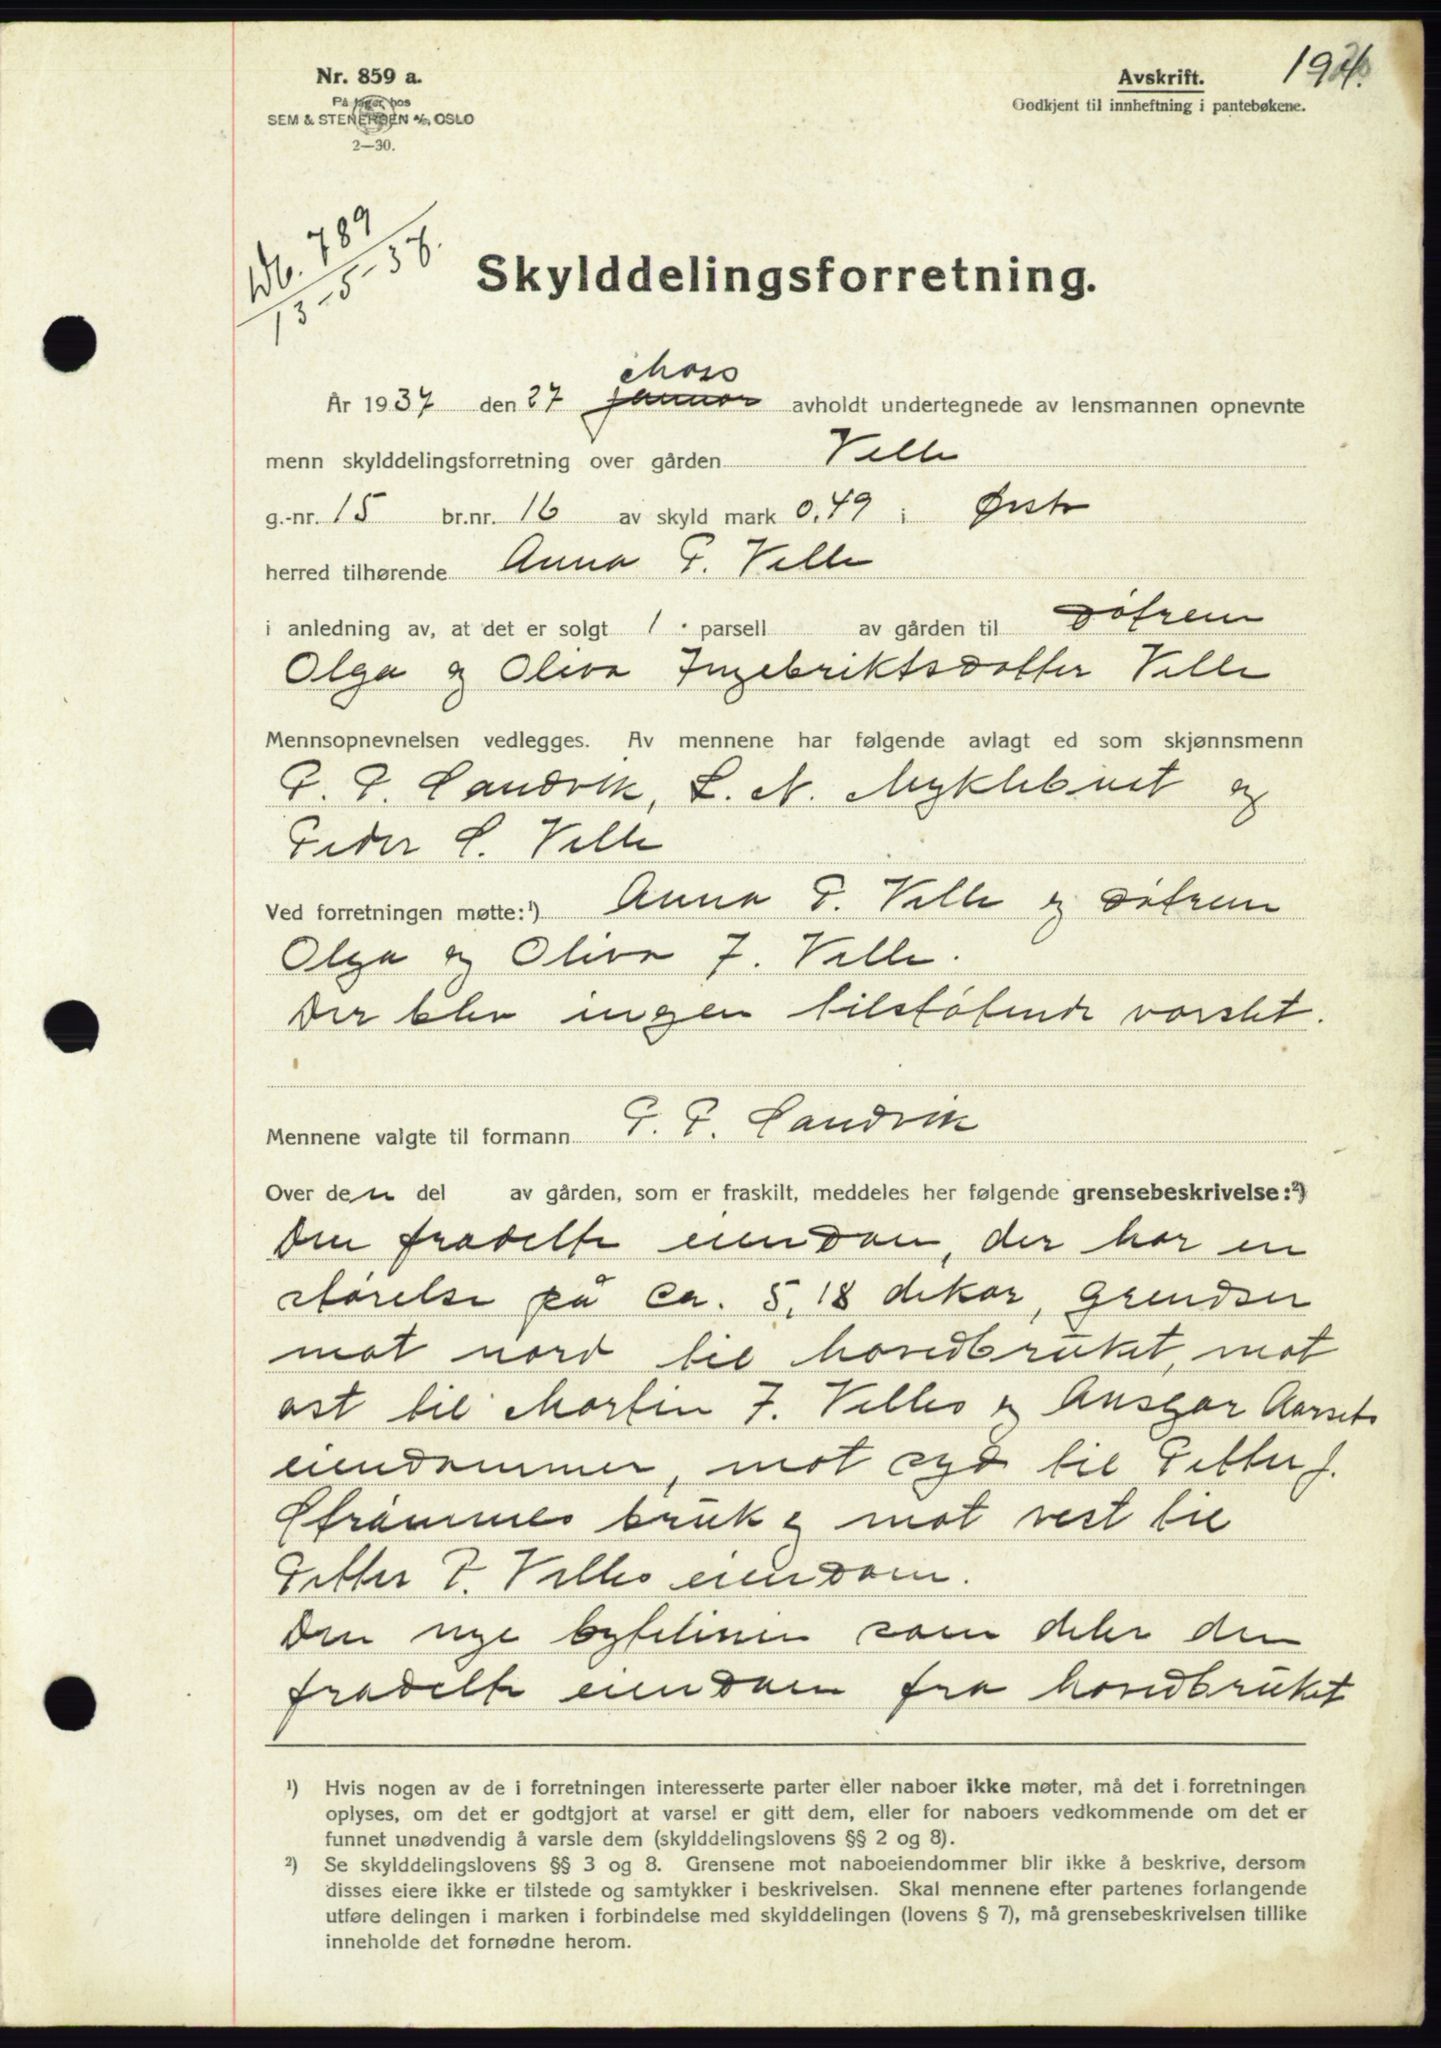 Nr. 859 a.
På lager hos
SEM & STENERSEN A/S, OSLO
2—30.
Avskrift.
Godkjent til innheftning i pantebøkene.
194.
Db. 789
13-5-37.
Skylddelingsforretning.
Mars
År 1937 den 27 januar avholdt undertegnede av lensmannen opnevnte
menn skylddelingsforretning over gården Velle
g.-nr. 15 br.nr. 16 av skyld mark 0,49 i Ørsta
herred tilhørende Anna P. Velle
i anledning av, at det er solgt 1. parsell av gården til døtrene
Olga og Oliva Ingebriktsdatter Velle
Mennsopnevnelsen vedlegges. Av mennene har følgende avlagt ed som skjønnsmenn
P. P. Sandvik, L. N. Myklebust og
Peder S. Velle
Ved forretningen møtte:¹) Anna P. Velle og døtrene
Olga og Oliva I. Velle.
Der blev ingen tilstøtende varslet.
Mennene valgte til formann P. P. Sandvik
Over den del av gården, som er fraskilt, meddeles her følgende grensebeskrivelse:²)
Den fradelte eiendom, der har en
størelse på ca. 5,18 dekar, grendser
mot nord til hovedbruket, mot
ost til Martin I. Velles og Ansgar Aarsets
eiendommer, mot syd til Petter J.
Strømmes bruk og mot vest til
Petter P. Velles eiendom.
Den nye bytelinen som deler den
fradelte eiendom fra hovedbruket
¹) Hvis nogen av de i forretningen interesserte parter eller naboer ikke møter, må det i forretningen
oplyses, om det er godtgjort at varsel er gitt dem, eller for naboers vedkommende om det er
funnet unødvendig å varsle dem (skylddelingslovens §§ 2 og 8).
²) Se skylddelingslovens §§ 3 og 8. Grensene mot naboeiendommer blir ikke å beskrive, dersom
disses eiere ikke er tilstede og samtykker i beskrivelsen. Skal mennene efter partenes forlangende
utføre delingen i marken i forbindelse med skylddelingen (lovens § 7), må grensebeskrivelsen tillike
inneholde det fornødne herom.